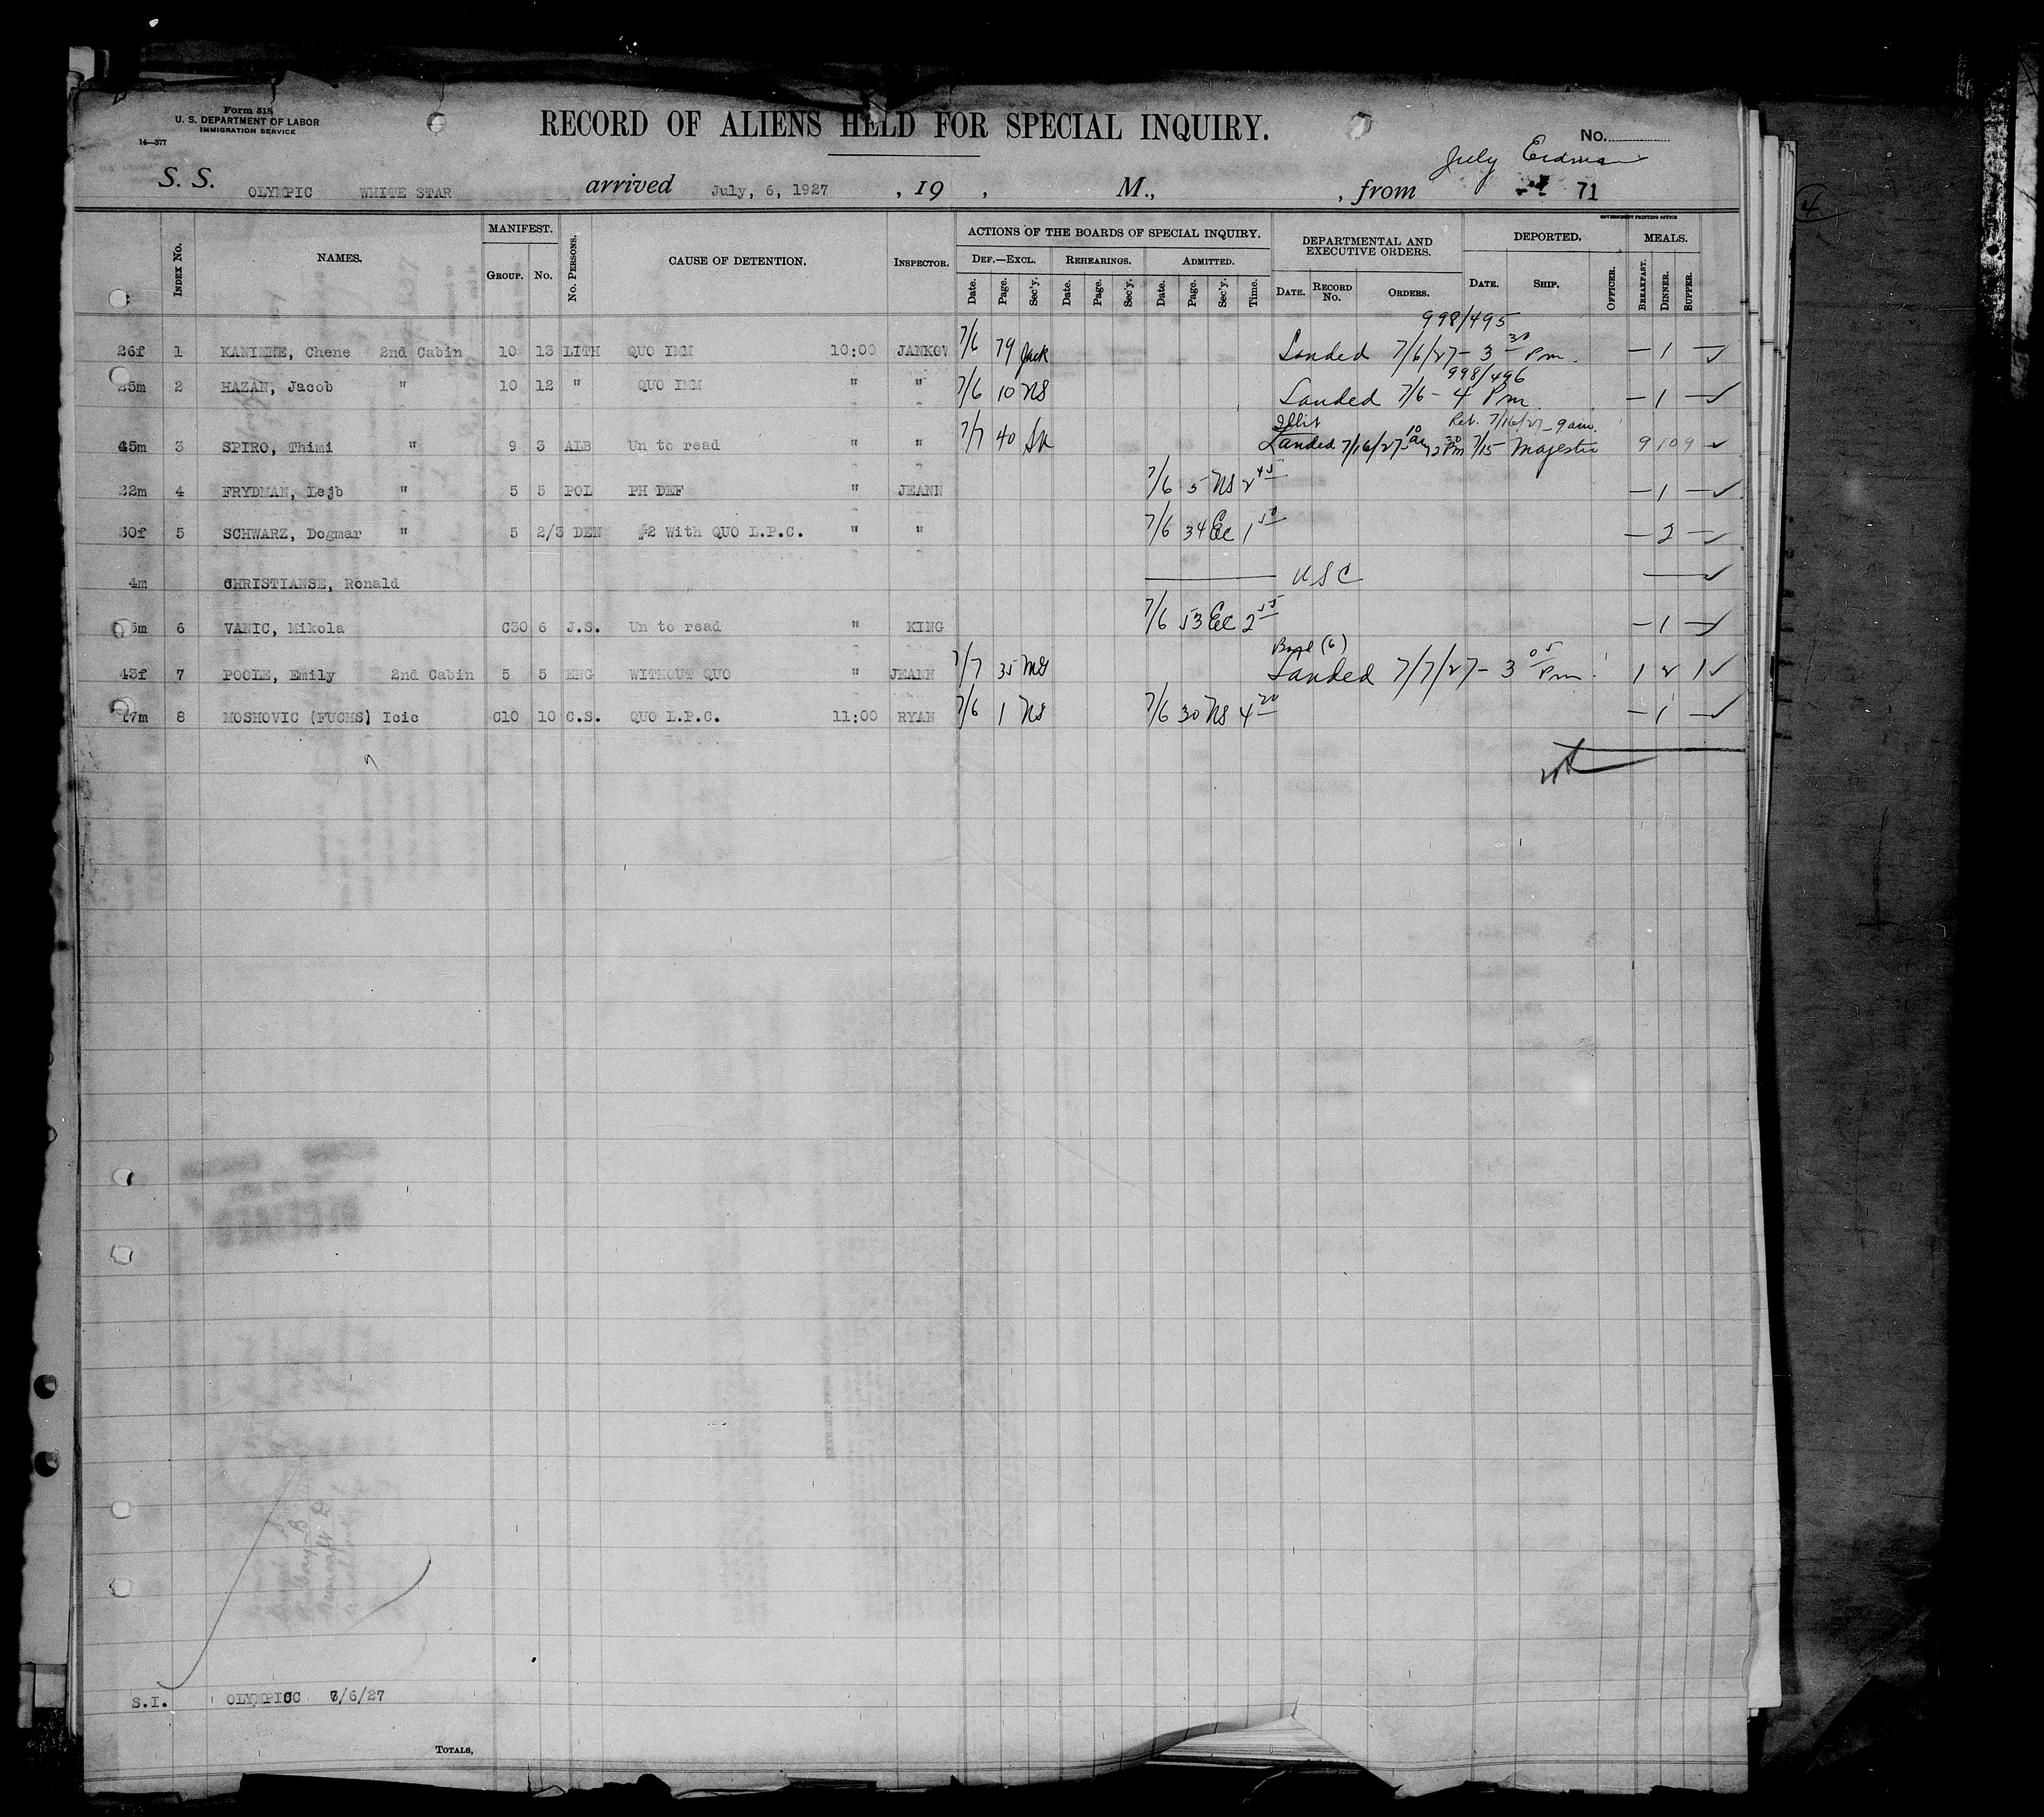 Form 518
U. S. DEPARTMENT OF LABOR
IMMIGRATION SERVICE
14—577
RECORD OF ALIENS HELD FOR SPECIAL INQUIRY.
No.
July Erdman
S. S. OLYMPIC WHITE STAR arrived July, 6, 1927 , 19 , M., , from 71
GOVERNMENT PRINTING OFFICE
Index No. NAMES. MANIFEST. Group. No. No. Persons. CAUSE OF DETENTION. Inspector. ACTIONS OF THE BOARDS OF SPECIAL INQUIRY. DEPARTMENTAL AND EXECUTIVE ORDERS. DEPORTED. MEALS.
Def.—Excl. Rehearings. Admitted.
Date. Page. Sec'y. Date. Page. Sec'y. Date. Page. Sec'y. Time. Date. Record No. Orders. Date. Ship. Officer. Breakfast. Dinner. Supper.
998/495
26f 1 KANIENE, Chene 2nd Cabin 10 13 LITH QUO IMM 10:00 JANKOV 7/6 79 Jack Landed 7/6/27 - 3 30 Pm. — 1 — ✓
998/496
25m 2 HAZAN, Jacob " 10 12 " QUO IMM " " 7/6 10 NS Landed 7/6 - 4 Pm — 1 — ✓
Ret. 7/16/27 - 9 am.
45m 3 SPIRO, Thimi " 9 3 ALB Un to read " " 7/7 40 SK Landed 7/16/27 7/15 Majestic 9 10 9 ✓
22m 4 FRYDMAN, Lejb " 5 5 POL PH DEF " JEANN 7/6 5 NS 2 45 — 1 — ✓
30f 5 SCHWARZ, Dogmar " 5 2/3 DEN #2 With QUO L.P.C. " " 7/6 34 EC 1 50 — 2 — ✓
4m CHRISTIANSE, Ronald USC — ✓
6 VANIC, Mikola C30 6 J.S. Un to read " KING 7/6 53 EC 2 55 — 1 — ✓
(6)
43f 7 POOLE, Emily 2nd Cabin 5 5 ENG WITHOUT QUO " JEANN 7/7 35 MS Landed 7/7/27 - 3 05 Pm. 1 2 1 ✓
8 MOSHOVIC (FUCHS) Icic C10 10 C.S. QUO L.P.C. 11:00 RYAN 7/6 1 NS 7/6 30 NS 4 20 — 1 — ✓
S.I. OLYMPIC 7/6/27
Totals,